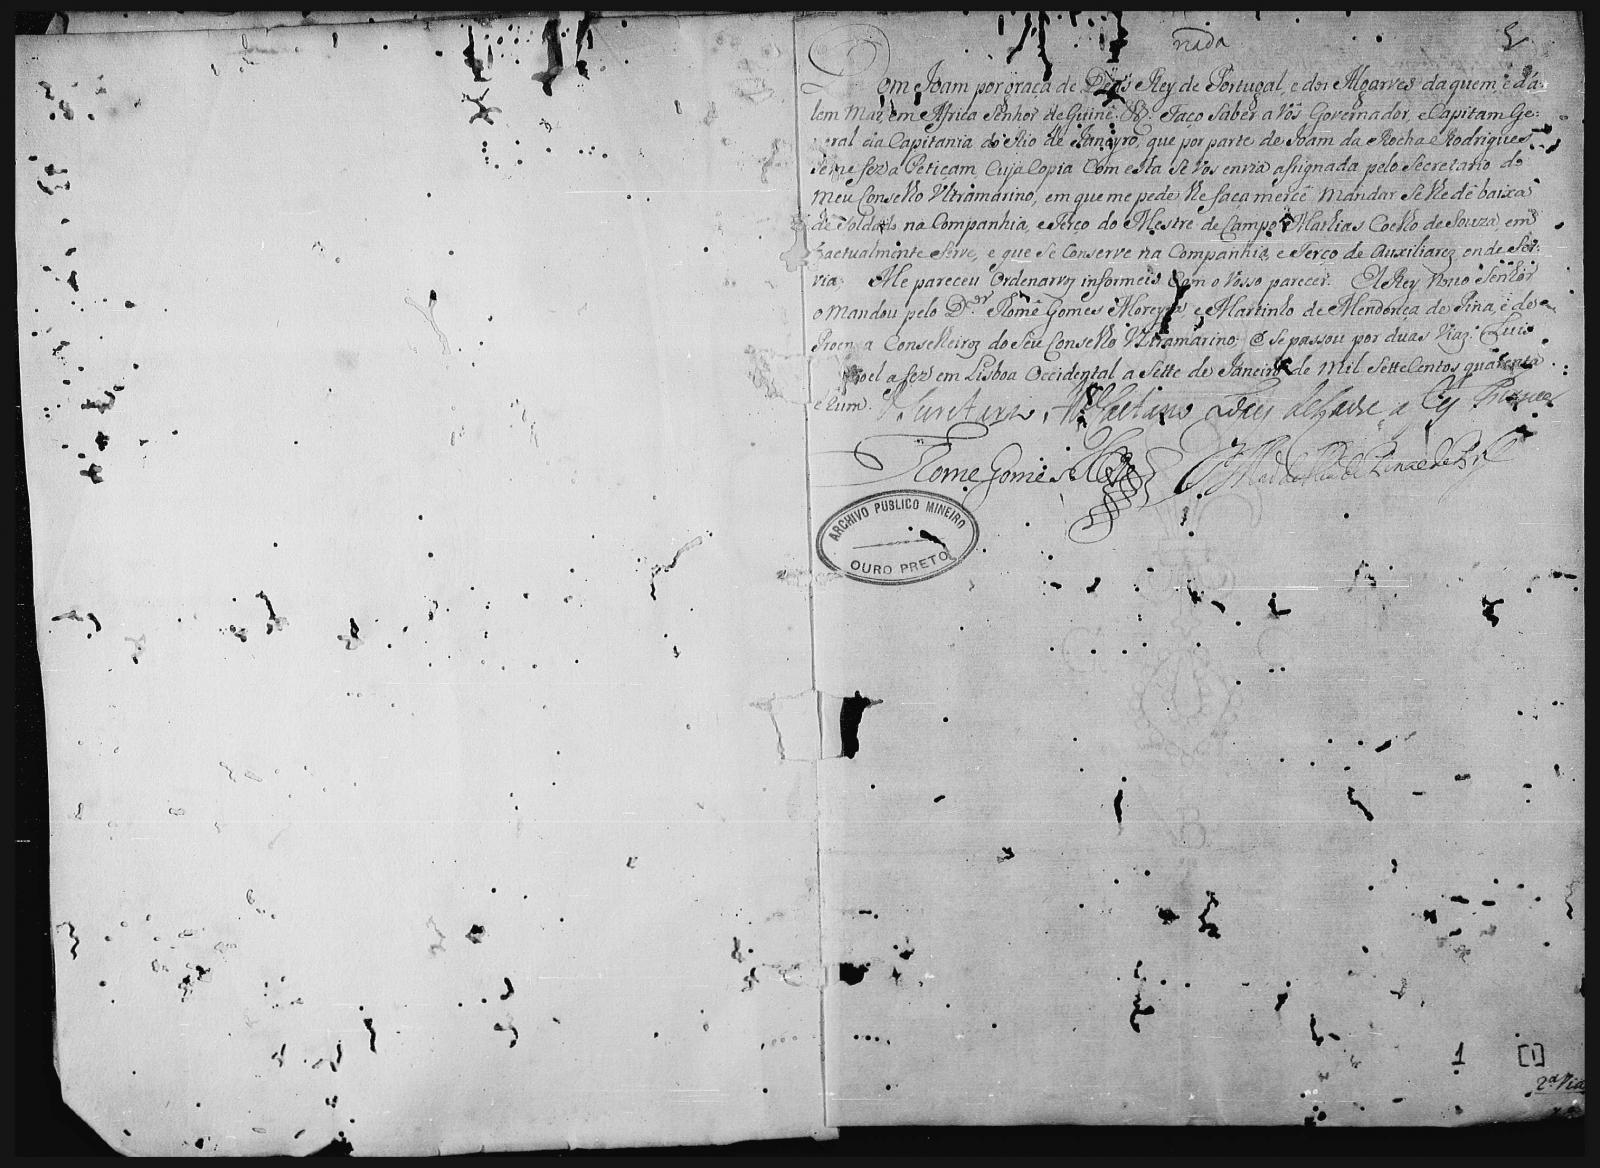 nada
Dom Joam por graça de Deos Rey de Portugal, e dos Algarves daquem, e dá-
lem Mar, em Africa Senhor de Guiné &. Faço Saber a vós Governador, e Capitam Ge:
ral da Capitania do Rio de Janeyro, que por parte de Joam da Rocha Rodrigues
se me fez a Petiçam, Cuja Copia Com esta se vos envia asignada pelo Secretario do
meu Conselho Ultramarino, em que me pede lhe faça mercê mandar se lhe dê baixa
de Soldado na Companhia, e Terço do Mestre de Campo Mathias Coelho de Souza, em
q actualmente Serve, e que se Conserve na Companhia, e Terço de Auxiliares, onde Ser:
via: Me pareceu Ordenarvos informeis Com o vosso parecer. El Rey Nosso Senhor
o mandou pelo D.or Thomé Gomes Moreyra, e Martinho de Mendonça de Pina, e de
Proença Conselheiros do Seu Conselho Ultramarino; e se passou por duas Vias. Luis
Manoel a fez em Lisboa Occidental a Sette de Janeiro de mil Sette Centos quarenta
e hum.
Thome Gomes
ARCHIVO PUBLICO MINEIRO
OURO PRETO
1 [1]
2ª Via